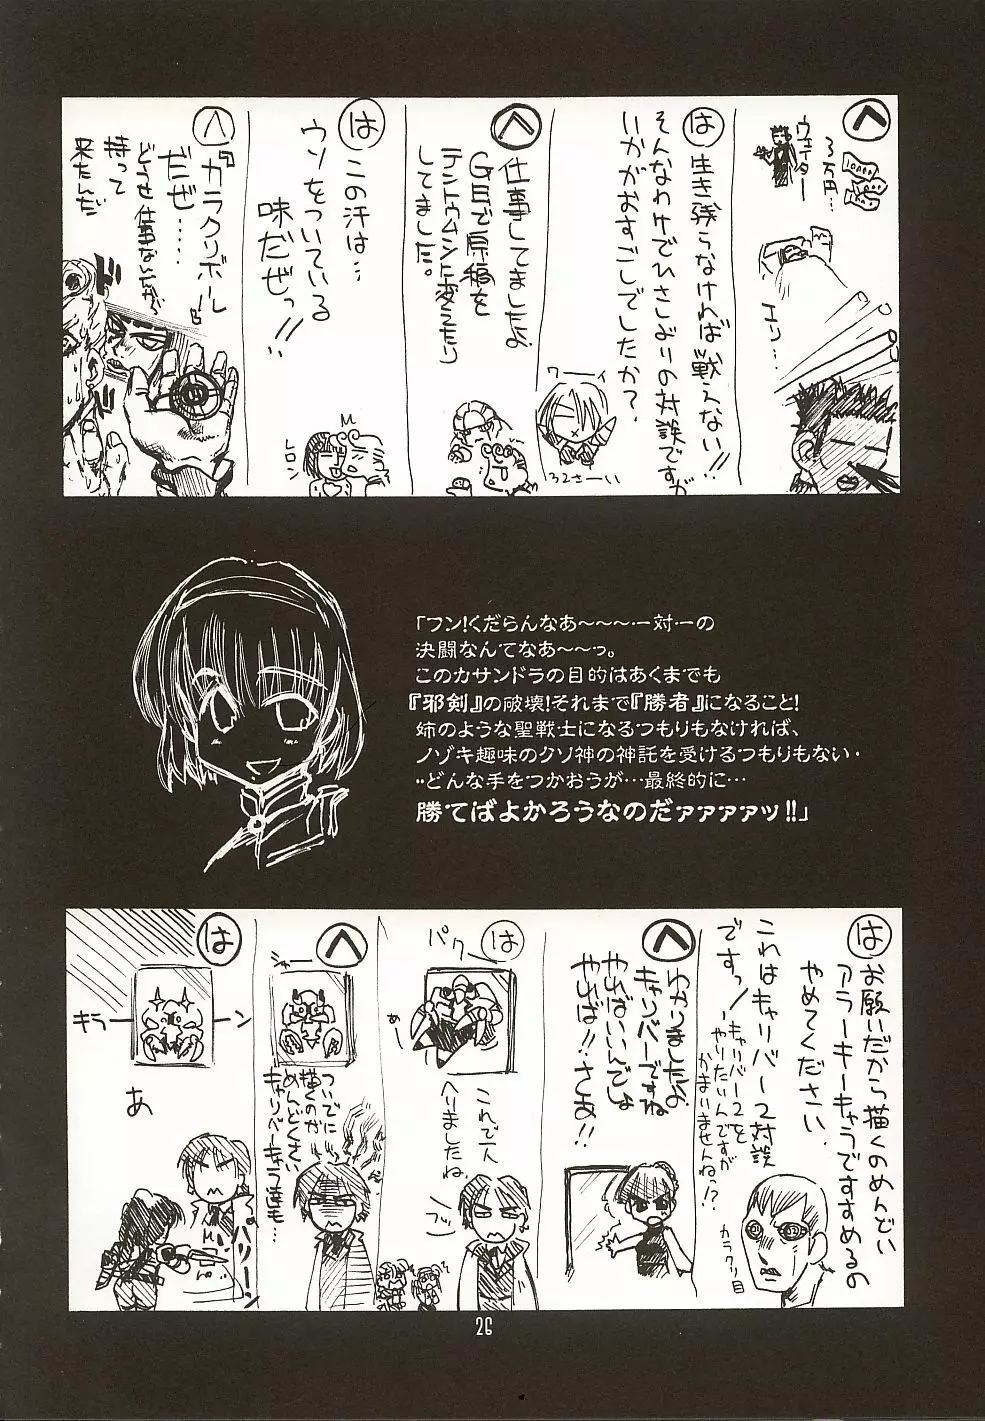 へ
3万円…
ウェイター
エリ…
は
生き残らなければ戦えない!!
そんなわけでひさしぶりの対談ですが
いかがおすごしでしたか?
ワーイ
132さーい
へ
仕事してましたよ
GEで原稿を
テントウムシに変えたり
してました。
は
この汗は…
ウソをついている
味だぜっ!!
レロン
へ
『カラクリボール』
だぜ……
どうせ仕事ないんだから
持って
来たんだ
「フン!くだらんなあ~~~一対一の
決闘なんてなあ~~っ。
このカサンドラの目的はあくまでも
『邪剣』の破壊!それまで『勝者』になること!
姉のような聖戦士になるつもりもなければ、
ノゾキ趣味のクソ神の神託を受けるつもりもない・
・・どんな手をつかおうが…最終的に…
勝てばよかろうなのだァァァァッ!!」
は
お願いだから描くのめんどい
アラーキーキャラですすめるの
やめてください
これはキャリバー2対談
ですっ!
キャリバー2を
やりたいんですが
かまいませんねっ!?
カラクリ目
へ
わかりましたよ
キャリバーですね
やればいいんでしょ
やれば!!さあ!!
は
パク
め
これで一人
へりましたね
フッ
へ
ジャーン
ついでに
描くのが
めんどくさい
キャリバーキャラ達も…
は
キラーーン
あ
バリーン
26